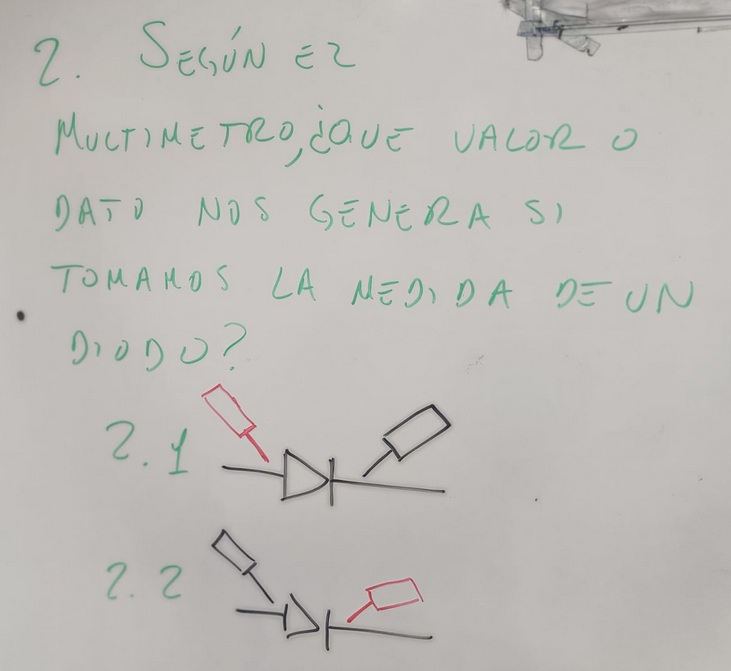 2. SEGÚN EL
MULTIMETRO, ¿QUE VALOR O
DATO NOS GENERA SI
TOMAMOS LA MEDIDA DE UN
DIODO?
2.1
2.2